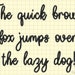 The quick brow
fox jumps over
the lazy dog!